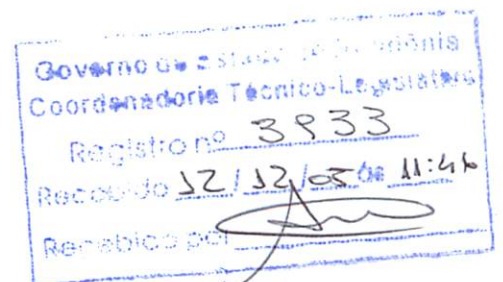 Governo do Estado de Rondônia
Coordenadoria Técnico-Legislativa
Registro nº 3933
Recebido 12/12/05 às 11:46
Recebido por